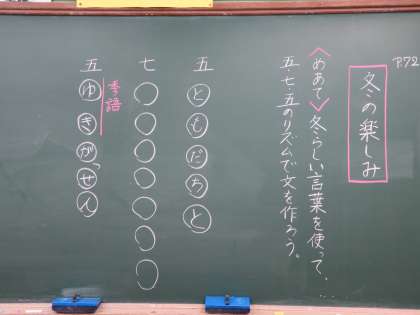 P.72
冬の楽しみ
〈めあて〉冬らしい言葉を使って、
五・七・五のリズムで文を作ろう。
五
ともだちと
七
○○○○○○○
季語
五
ゆきがっせん